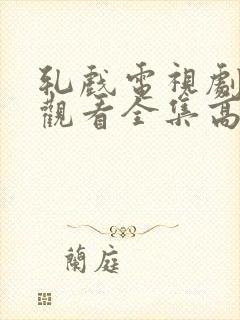 乳戲電視劇
觀看全集高
蘭庭